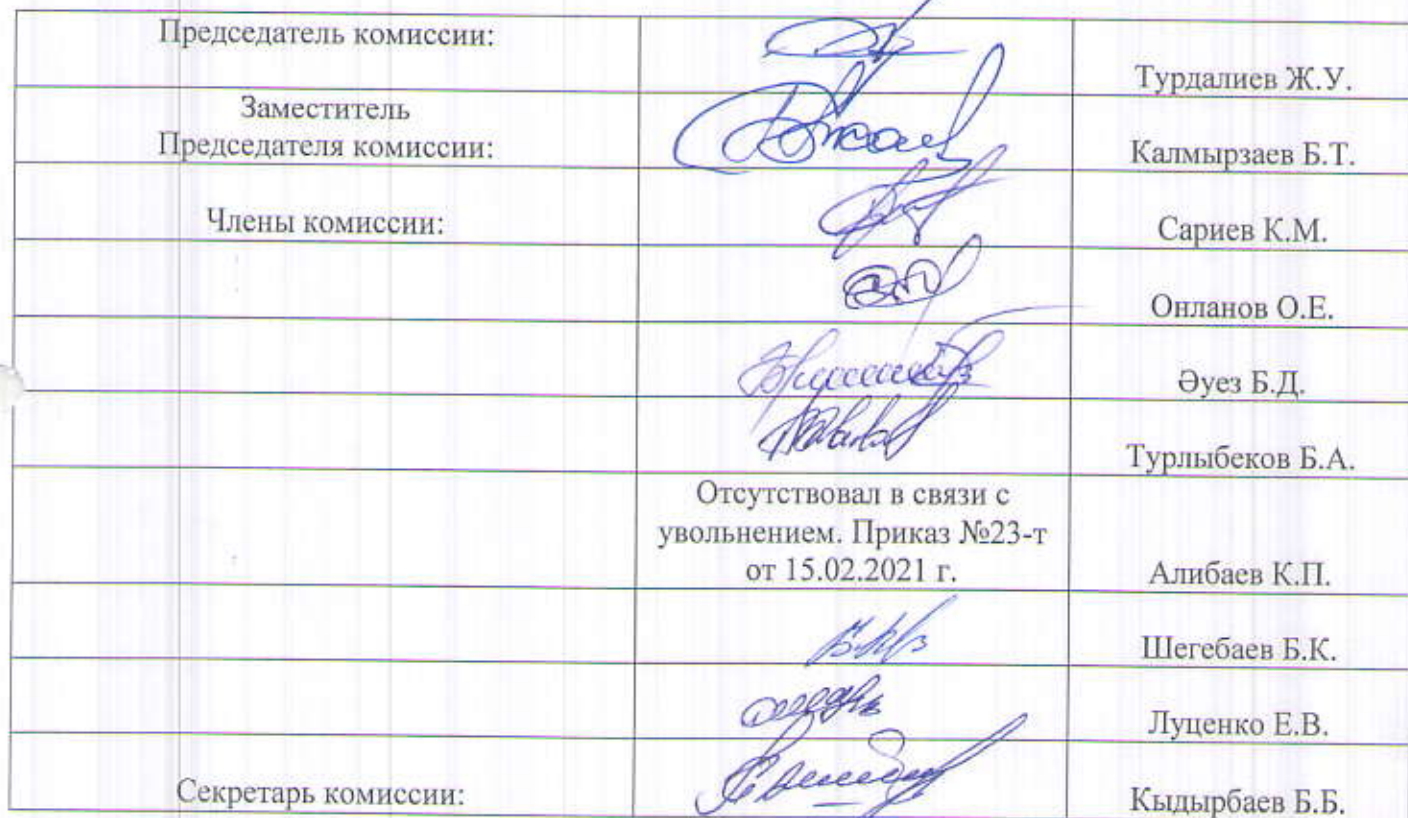 Председатель комиссии:
Турдалиев Ж.У.
Заместитель
Председателя комиссии:
Калмырзаев Б.Т.
Члены комиссии:
Сариев К.М.
Онланов О.Е.
Әуез Б.Д.
Турлыбеков Б.А.
Отсутствовал в связи с
увольнением. Приказ №23-т
от 15.02.2021 г.
Алибаев К.П.
Шегебаев Б.К.
Луценко Е.В.
Секретарь комиссии:
Кыдырбаев Б.Б.